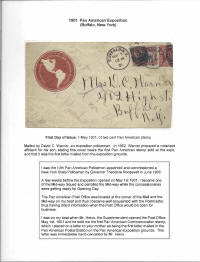 1901 Pan American Exposition
(Buffalo, New York)
First Day of Issue, 1 May 1901, of two cent Pan American stamp
Mailed by David C. Warner, an exposition policeman. In 1952, Warner prepared a notarized
affidavit for his son, stating this cover bears the first Pan American stamp sold at the expo,
and that it was the first letter mailed from the exposition grounds.
I was the 13th Pan American Policeman appointed and commissioned a
New York State Policeman by Governor Theodore Roosevelt in June 1900.
A few weeks before the Exposition opened on May 1st 1901, I became one
of the Mid-way Squad and patrolled the Mid-way while the concessionaires
were getting ready for Opening Day.
The Pan American Post Office was located at the corner of the Mall and the
Mid-way on my beat and thus I became well acquainted with the Postmaster,
thus having direct information when the Post Office would be open for
business.
I was on my beat when Mr. Heins, the Superintendent opened the Post Office
May 1st, 1901 and he sold me the first Pan American Commemorative stamp,
which I placed on a letter to your mother as being the first letter mailed in the
Pan American Postal Station on the Pan American Exposition grounds. This
letter was immediately hand-cancelled by Mr. Heins